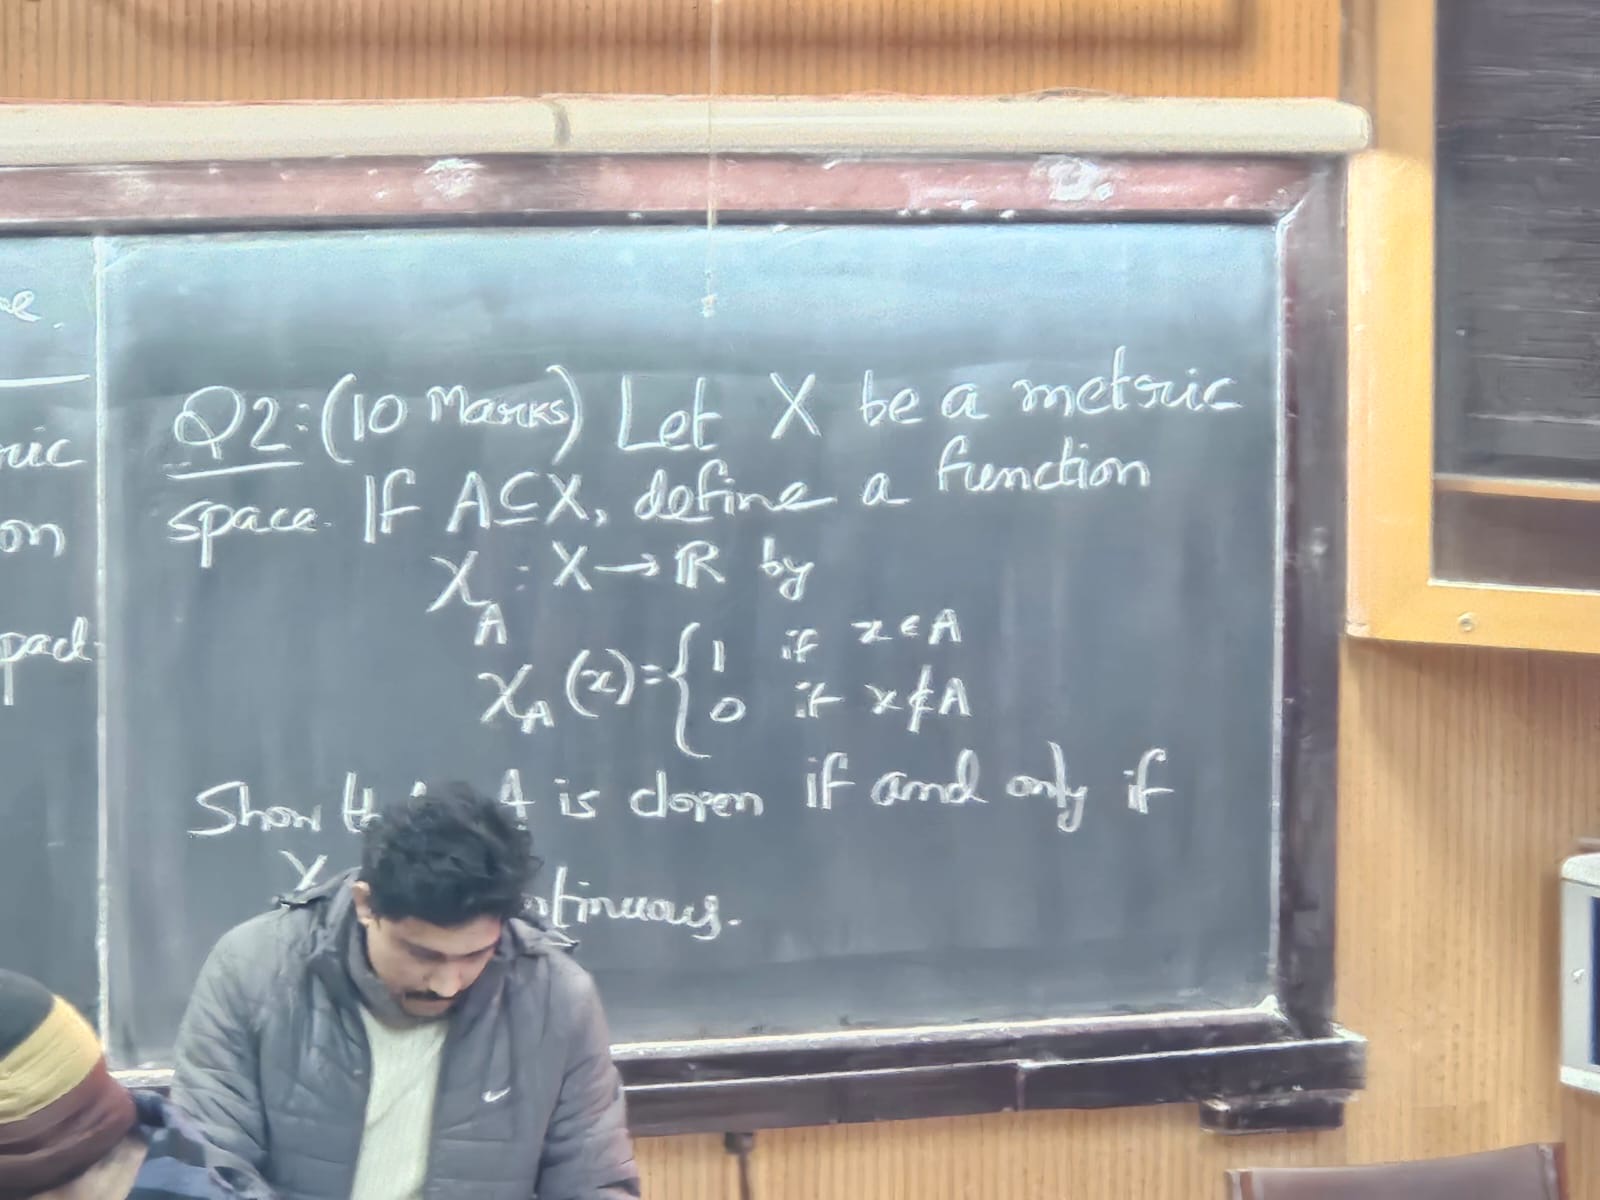 ne.
ric
on
pact
Q2: (10 Marks) Let X be a metric
space. If A⊆X, define a function
χ_A : X → ℝ by
χ_A (x) = { 1 if x ∈ A
0 if x ∉ A
Show A is clopen if and only if
χ ntinuous.